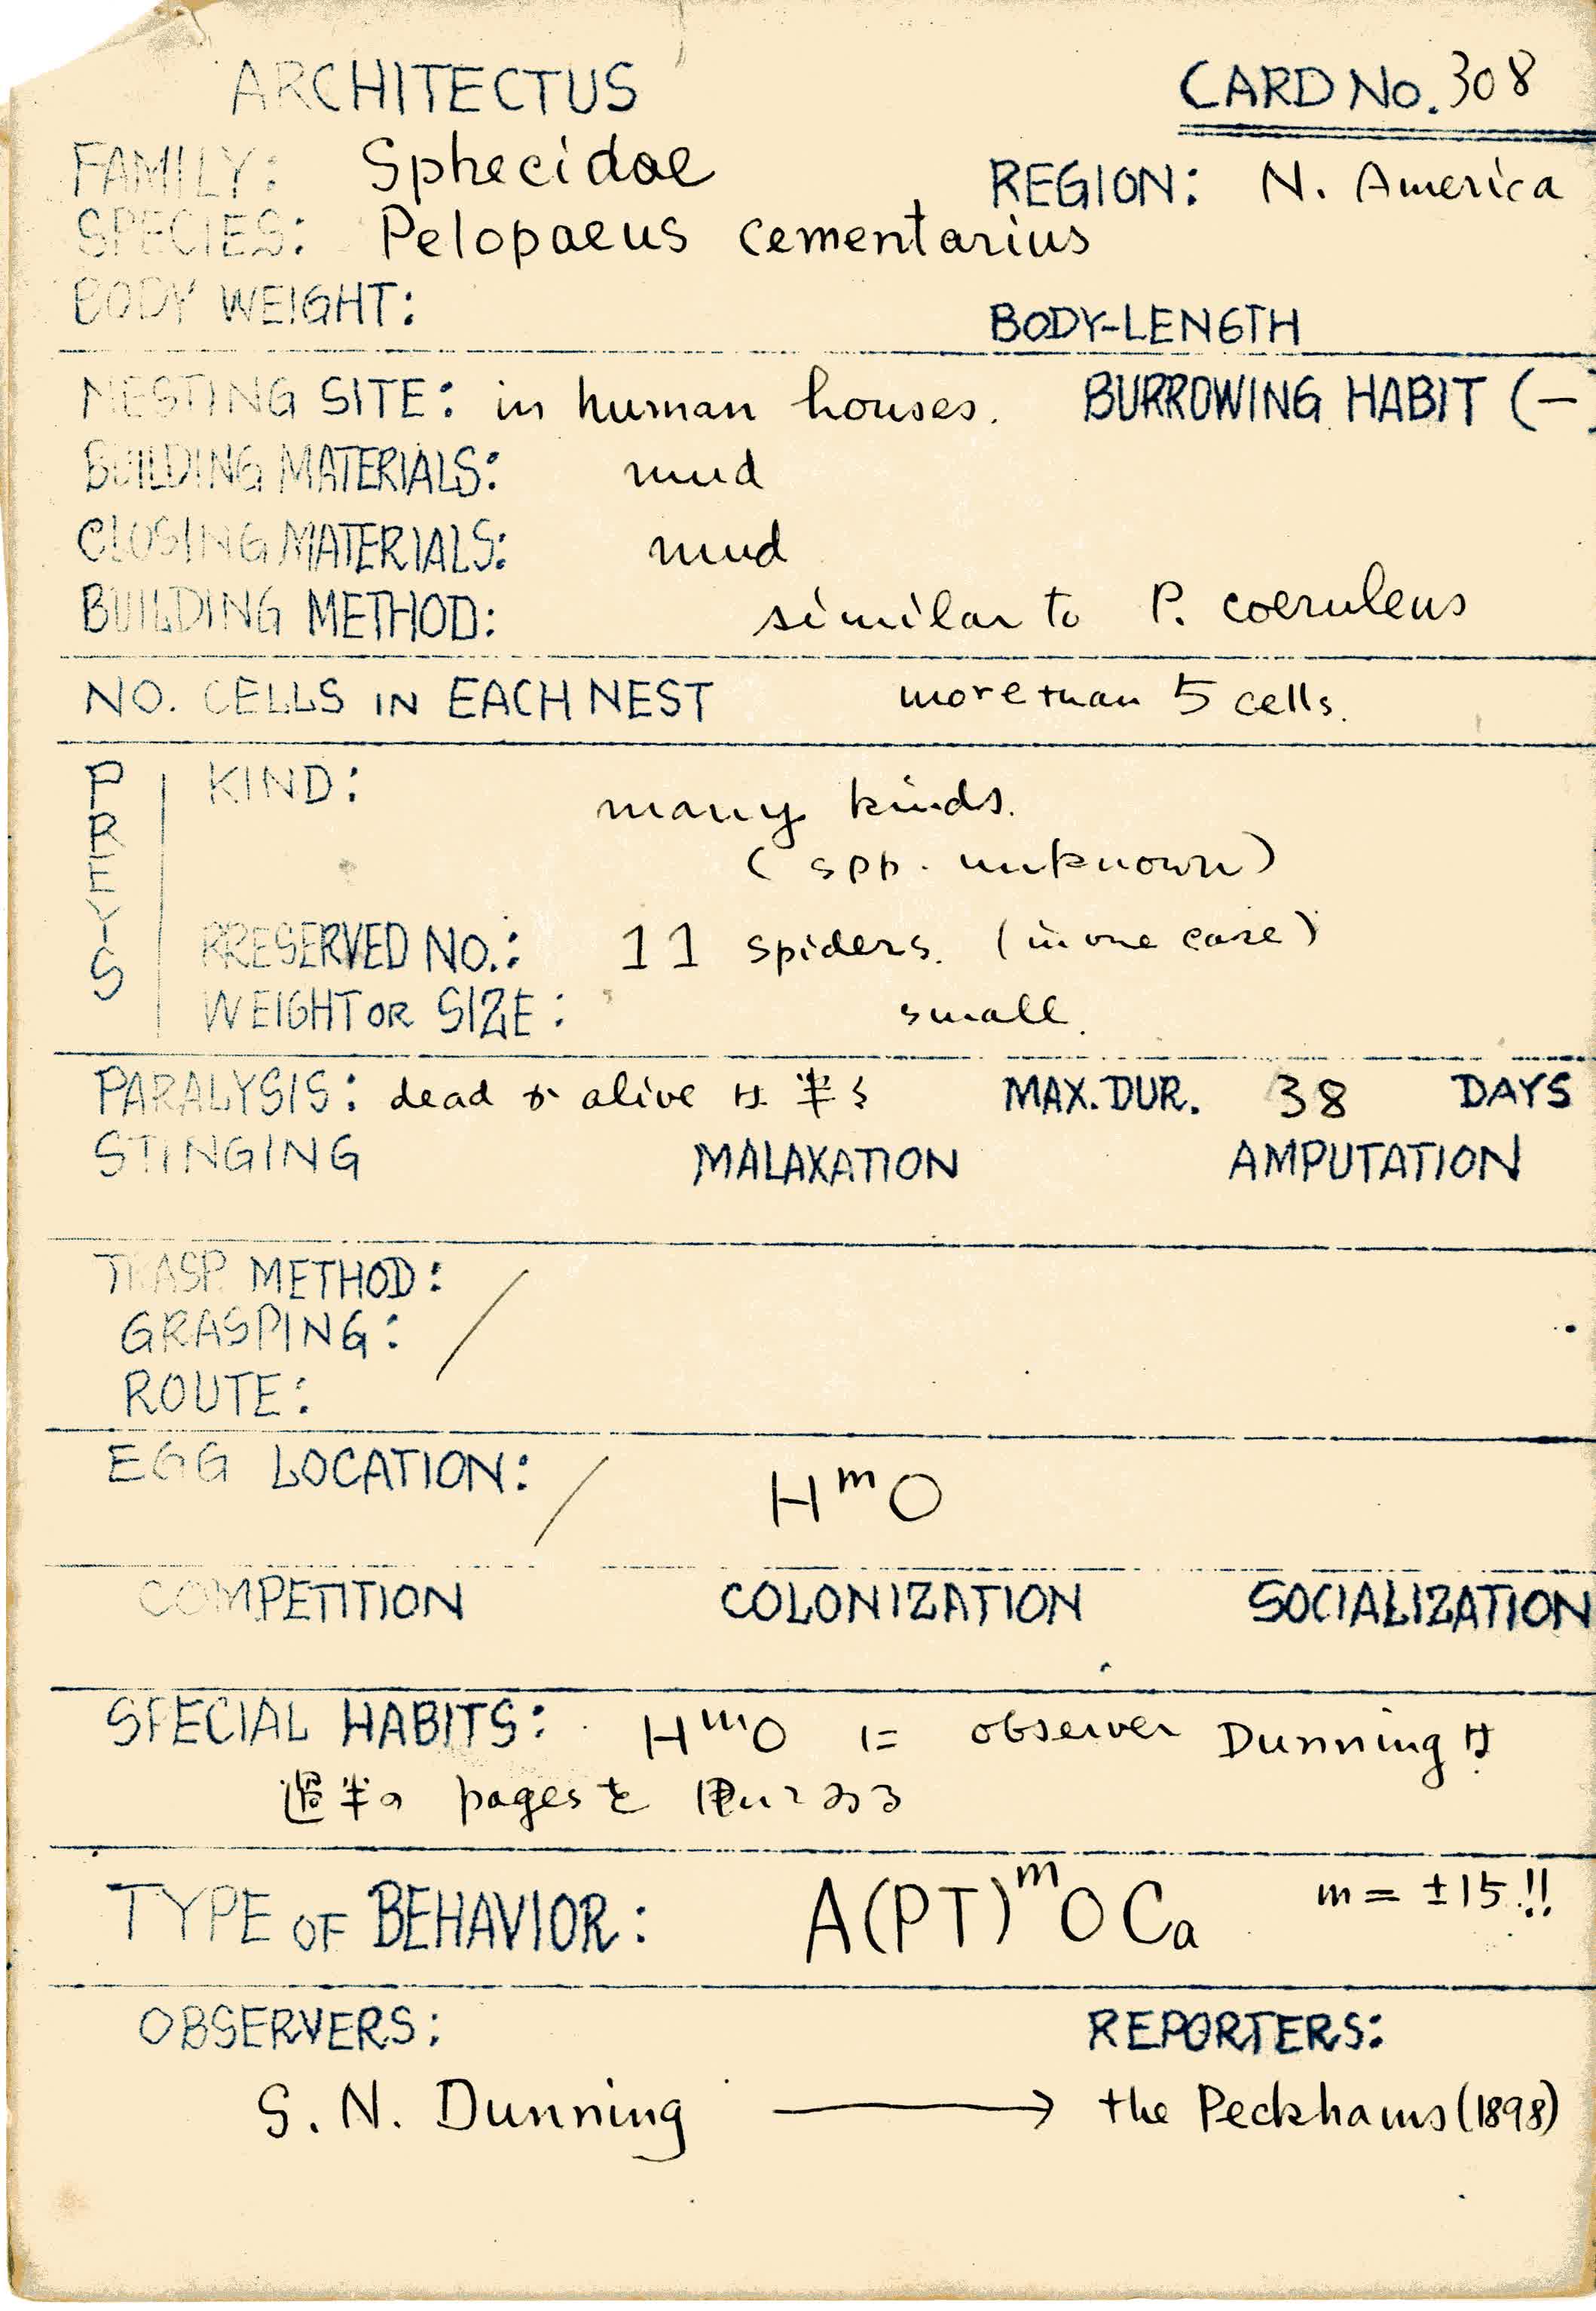 ARCHITECTUS CARD No. 308
FAMILY: Sphecidae REGION: N. America
SPECIES: Pelopaeus cementarius
BODY WEIGHT: BODY-LENGTH
NESTING SITE: in human houses. BURROWING HABIT (-)
BUILDING MATERIALS: mud
CLOSING MATERIALS: mud
BUILDING METHOD: similar to P. coeruleus
NO. CELLS IN EACH NEST more than 5 cells.
PREYS KIND: many kinds.
(spp. unknown)
PRESERVED NO.: 11 spiders. (in one case)
WEIGHT OR SIZE: small.
PARALYSIS: dead か alive は半々 MAX. DUR. 38 DAYS
STINGING MALAXATION AMPUTATION
TRASP. METHOD: /
GRASPING:
ROUTE:
EGG LOCATION: / HᵐO
COMPETITION COLONIZATION SOCIALIZATION
SPECIAL HABITS: HᵐO に observer Dunning は
過半の pages を 用いてゐる
TYPE OF BEHAVIOR: A(PT)ᵐOCa m = ±15!!
OBSERVERS: REPORTERS:
S. N. Dunning → the Peckhams (1898)